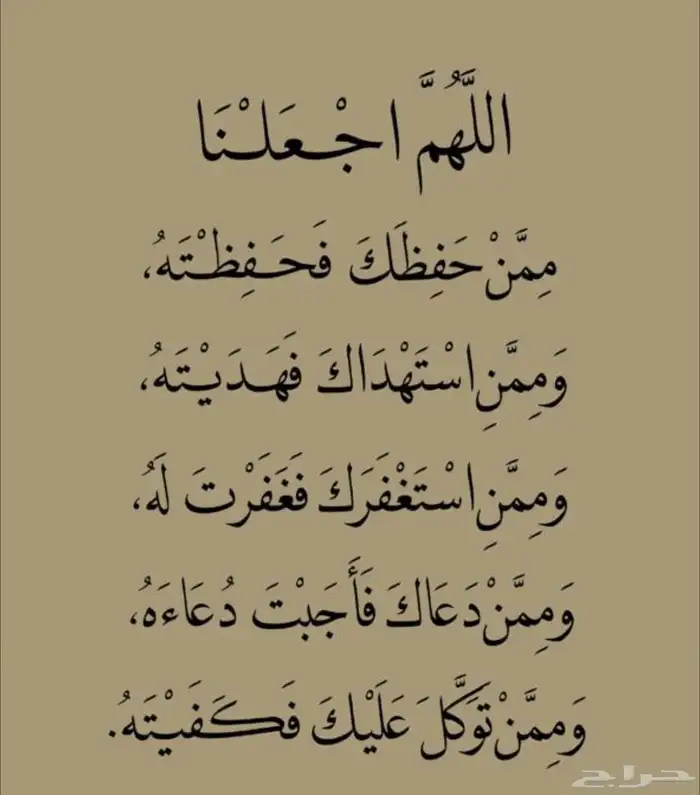 اللَّهُمَّ اجْعَلْنَا
مِمَّنْ حَفِظَكَ فَحَفِظْتَهُ،
وَمِمَّنِ اسْتَهْدَاكَ فَهَدَيْتَهُ،
وَمِمَّنِ اسْتَغْفَرَكَ فَغَفَرْتَ لَهُ،
وَمِمَّنْ دَعَاكَ فَأَجَبْتَ دُعَاءَهُ،
وَمِمَّنْ تَوَكَّلَ عَلَيْكَ فَكَفَيْتَهُ.
حراج